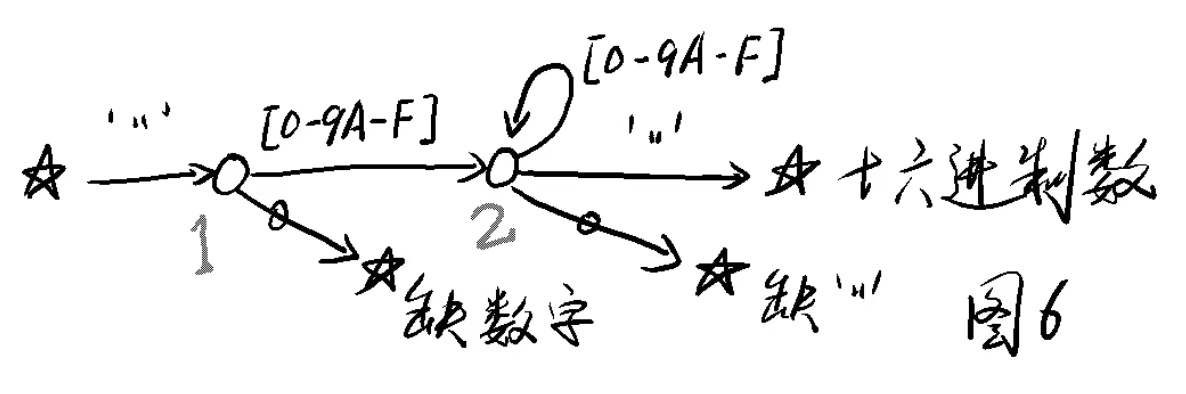 [0-9A-F]
'"' [0-9A-F] '"'
十六进制数
1 2
缺数字 缺'"' 图6